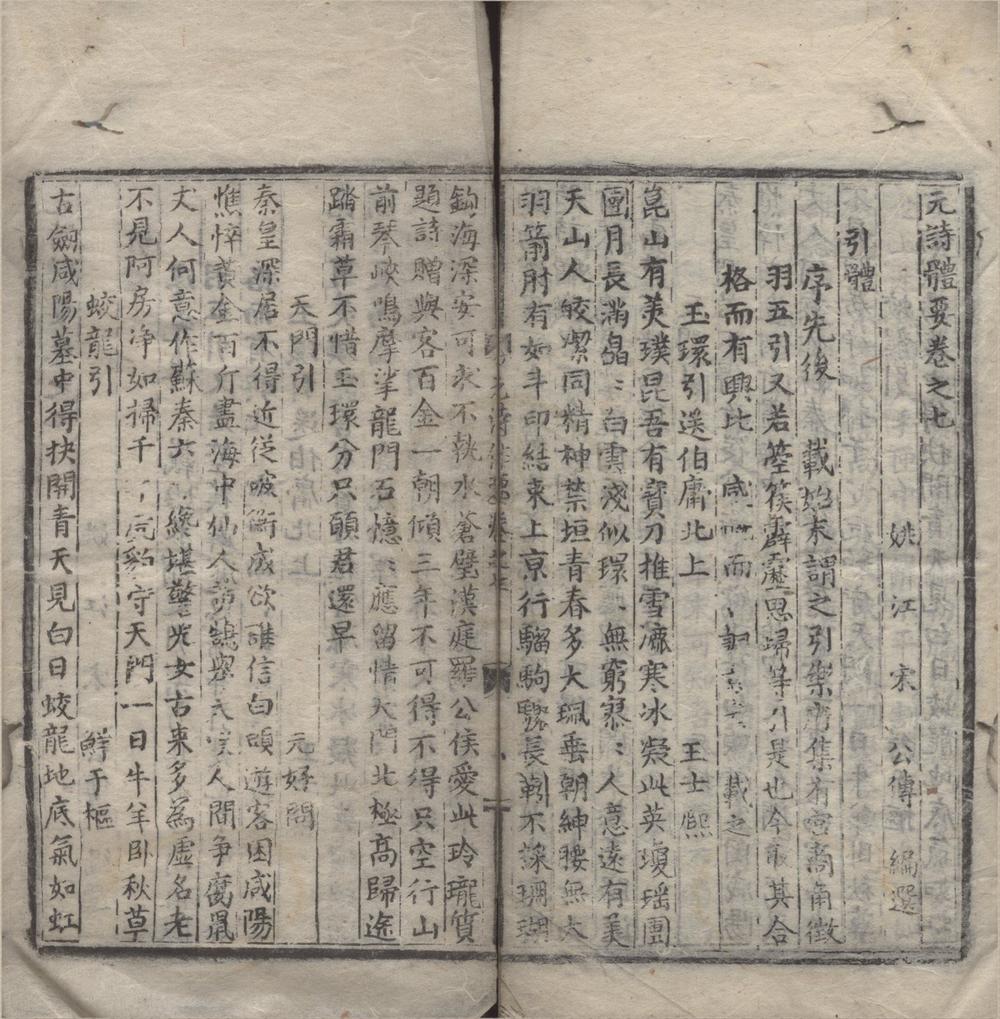 元詩體要卷之七
姚江 宋 公傳 編選
引體
序先後載始末謂之引樂府集有宮商角徵
羽五引又若箜篌霹靂思歸等引是也今取其合
格而有興比 而 載之
玉環引送伯庸北上 王士熙
崑山有美璞昆吾有寶刀推雪漉寒冰凝此英瓊瑶團
團月長滿皛〻白雲淺似環〻無窮寥〻人意遠有美
天山人皎潔同精神禁垣青春多大珮垂朝紳腰無大
羽箭肘有如斗印結束上京行騮駒驟長靷不採珊瑚
鈎海深安可求不執水蒼璧漢庭羅公侯愛此玲瓏質
題詩贈與客百金一朝傾三年不可得不得只空行山
前琴峽鳴摩挲龍門石憶〻應留情天門北極高歸途
踏霜草不惜玉環分只願君還早
天門引 元好問
秦皇深居不得近從破衡成欲誰信白頭遊客困咸陽
憔悴黃金百斤盡海中仙人 人間爭腐鼠
丈人何意作蘇秦六 纔堪警 女古來多為虛名老
不見阿房淨如掃千 虎豹守天門一日牛羊卧秋草
蛟龍引 鮮于樞
古劍咸陽墓中得抉開青天見白日蛟龍地底氣如虹